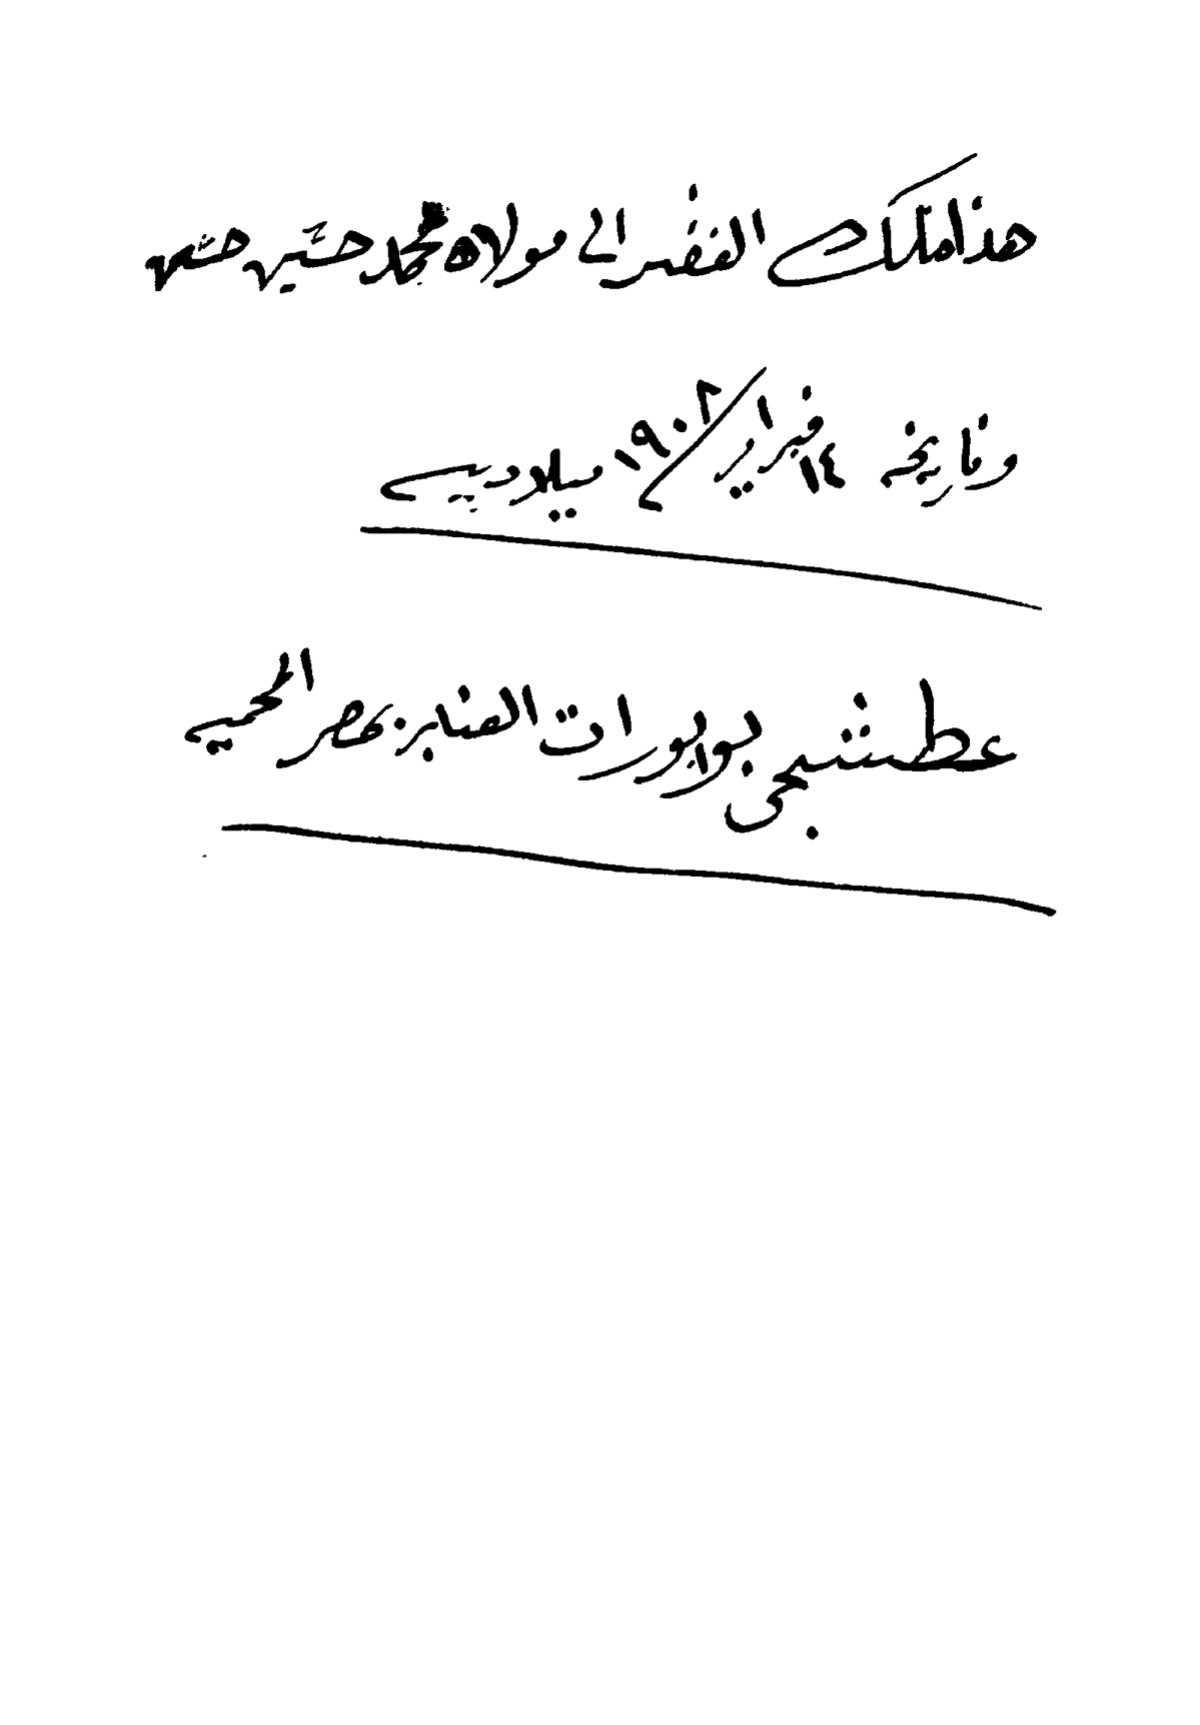 هذا ملك الفقير الى مولاه محمد حسين حسن
وتاريخه ١٤ فبراير ١٩٠٨ ميلاديه
عطشجى بوابورات العنابر بمصر المحميه